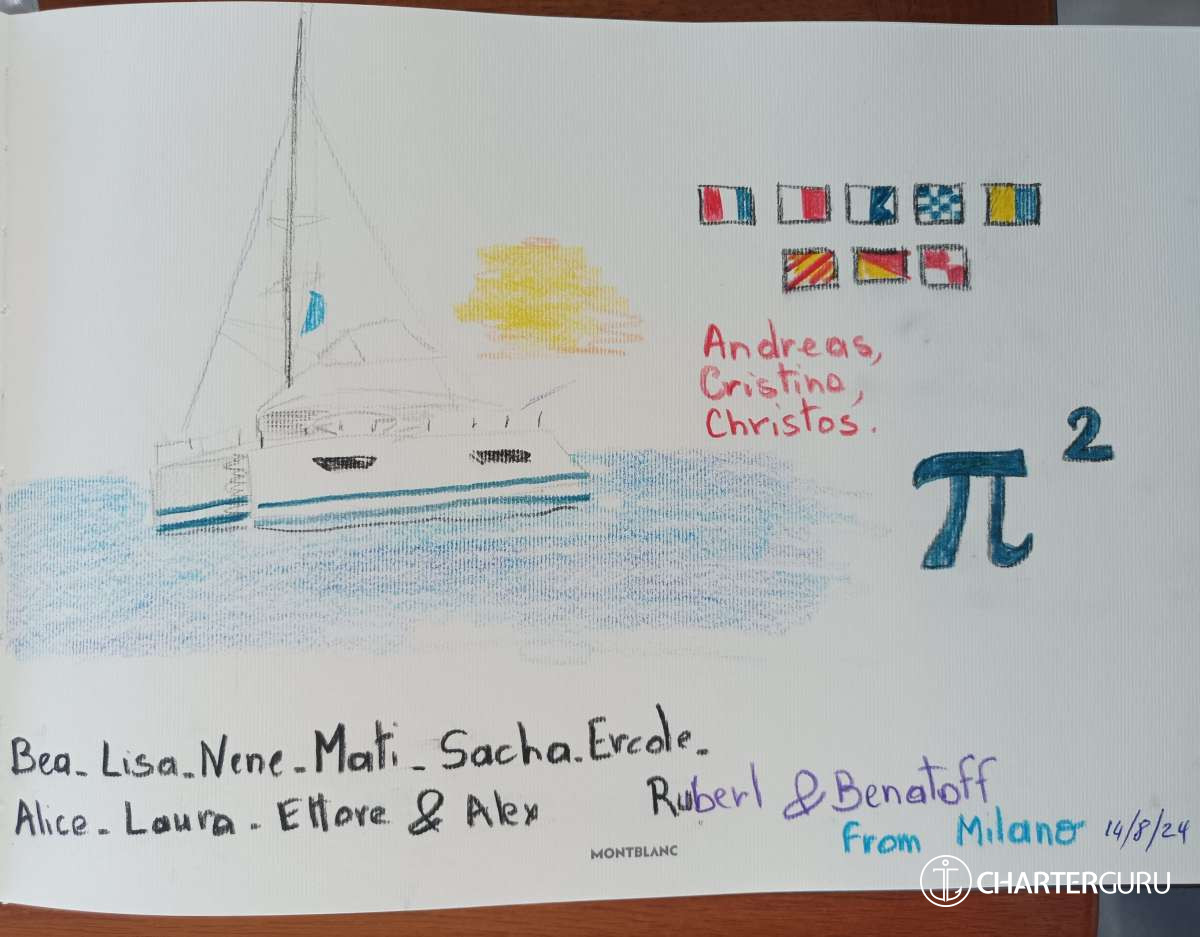 Andreas,
Cristina,
Christos.
π²
Bea_Lisa_Nene_Mati_Sacha_Ercole_
Alice_Laura_Ettore & Alex
Ruberl & Benatoff
from Milano 14/8/24
MONTBLANC
CHARTERGURU